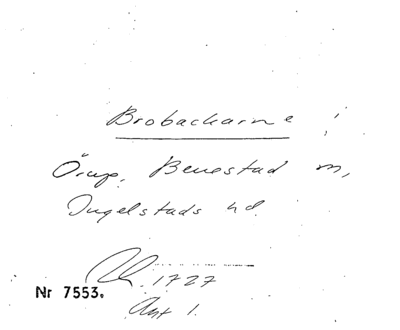 Brobackarne
Örup, Benestad m,
Ingelstads hd.
1727
Nr 7553.
Akt 1.